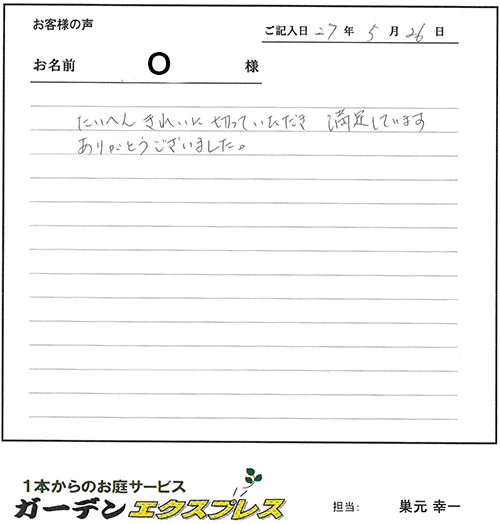 お客様の声
ご記入日 27 年 5 月 26 日
お名前 O 様
たいへん きれいに 切っていただき 満足しています
ありがとうございました。
1本からのお庭サービス
ガーデンエクスプレス
担当: 巣元 幸一